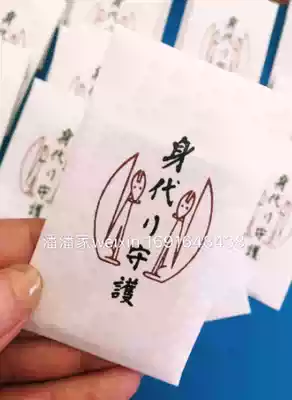 身代り守護
潘潘家weixin1691648438